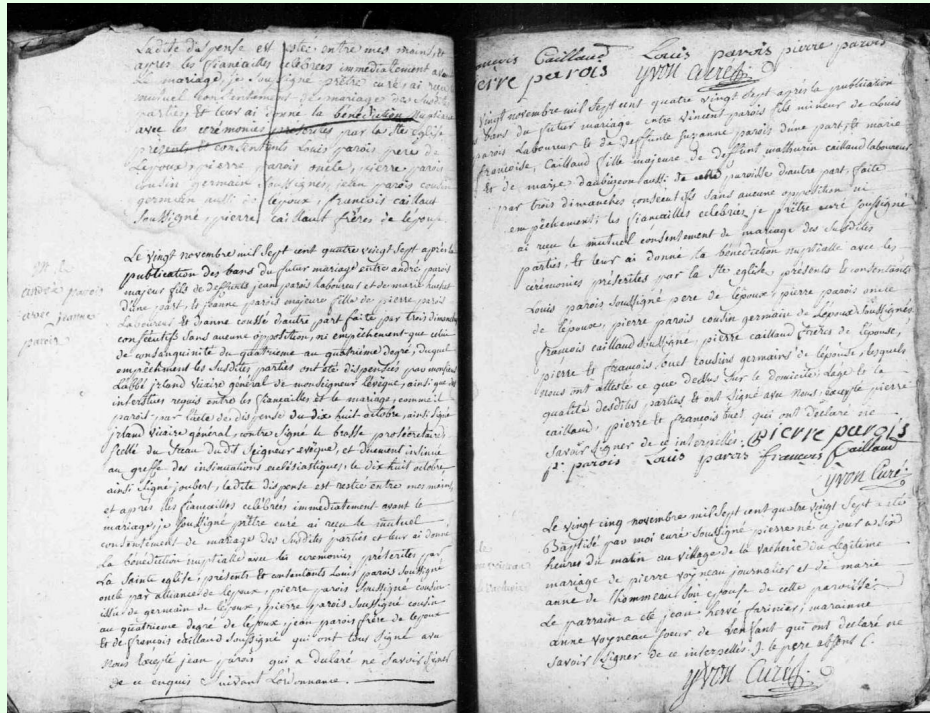 Ladite dispense est restée entre mes mains, et
après les fiançailles célébrées immédiatement avant
le mariage, je soussigné prêtre curé, ai reçu
mutuel consentement de mariage des susdites
parties, et leur ai donné la bénédiction nuptiale
avec les cérémonies préscrites par la Ste Eglise
présents et consentants Louis parois pere de
Lepoux, pierre parois oncle, pierre parois
cousin germain soussignés, jean parois cousin
germain aussi de lepoux, francois caillaut
soussigné, pierre caillaut frères de lepouse
Le vingt novembre mil sept cent quatre vingt sept après la
publication des bans du futur mariage entre andré parois
majeur fils de deffunts jean parois laboureur et de marie
d'une part, et jeanne parois majeure fille de pierre parois
Laboureur et jeanne cousse d'autre part faite par trois dimanches
consécutifs sans aucune opposition, ni empêchement que celui
de consanguinité du quatrieme au quatrième degré, duquel
empêchement les susdites parties ont été dispensées par monsieur
L'abbé jrland vicaire général de monseigneur levêque, ainsi que des
interstices requis entre les fiançailles et le mariage, comme il
paroit par l'acte de dispense du dix huit octobre, ainsi signé
jrland vicaire général, contre signé le brasse prosécretaire,
scellé du sceau dudit seigneur evêque, et duement insinué
au greffe des insinuations ecclésiastiques, le dix huit octobre
ainsi signé joubert, ladite dispense est restée entre mes mains,
et après les fiançailles célébrées immédiatement avant le
mariage, je soussigné prêtre curé ai reçu le mutuel
consentement de mariage des susdites parties et leur ai donné
la bénédiction nuptialle avec les ceremonies préscrites par
la sainte eglise, présents et consentants Louis parois soussigné
oncle par alliance de lépoux, pierre parois soussigné cousin
issu de germain de lepoux, pierre parois soussigné cousin
au quatrieme degré de lepoux jean parois frère de lepoux
et de françois caillaud soussigné qui ont tous signé avec
nous excepté jean parois qui a déclaré ne savoir signer
de ce enquis suivant l'ordonnance.
M. de
andré parois
avec jeanne
parois
françois Caillaud Louis parois pierre parois
pierre parois yvon curé
vingt novembre mil sept cent quatre vingt sept après la publication
bans du futur mariage entre vincent parois fils mineur de Louis
parois Laboureur et de deffunte suzanne parois d'une part, et marie
françoise, Caillaud fille majeure de deffunt mathurin caillaud laboureur
et de marie daubigeon aussi de cette paroisse d'autre part, faite
par trois dimanches consecutifs sans aucune opposition ni
empêchement; les fiançailles celebrées, je prêtre curé soussigné
ai reçu le mutuel consentement de mariage des susdites
parties, et leur ai donné la bénédiction nuptialle avec les
cérémonies préscrites par la Ste eglise, présents et consentants
Louis parois soussigné pere de lépoux, pierre parois oncle
de lépoux, pierre parois cousin germain de Lepoux soussignés
françois caillaud soussigné, pierre caillaud frères de lépouse,
pierre et françois buet cousins germains de lépouse, lesquels
nous ont attesté ce que dessus sur le domicile, l'age et la
qualité desdites parties et ont signé avec nous, excepté pierre
caillaud, pierre et françois buet qui ont déclaré ne
savoir signer de ce interpellés. pierre parois
pre parois Louis parois françois Caillaud
yvon Curé
Le vingt cinq novembre mil sept cent quatre vingt sept a été
Baptisé par moi curé soussigné pierre né ce jour à six
heures du matin au village de la vacherie du legitime
mariage de pierre voyneau journalier et de marie
anne de l'hommeau son epouse de cette paroisse.
Le parrain a été jean hervé farinier, maraine
anne voyneau soeur de l'enfant qui ont déclaré ne
savoir signer de ce interpellés. le pere absent
yvon Curé